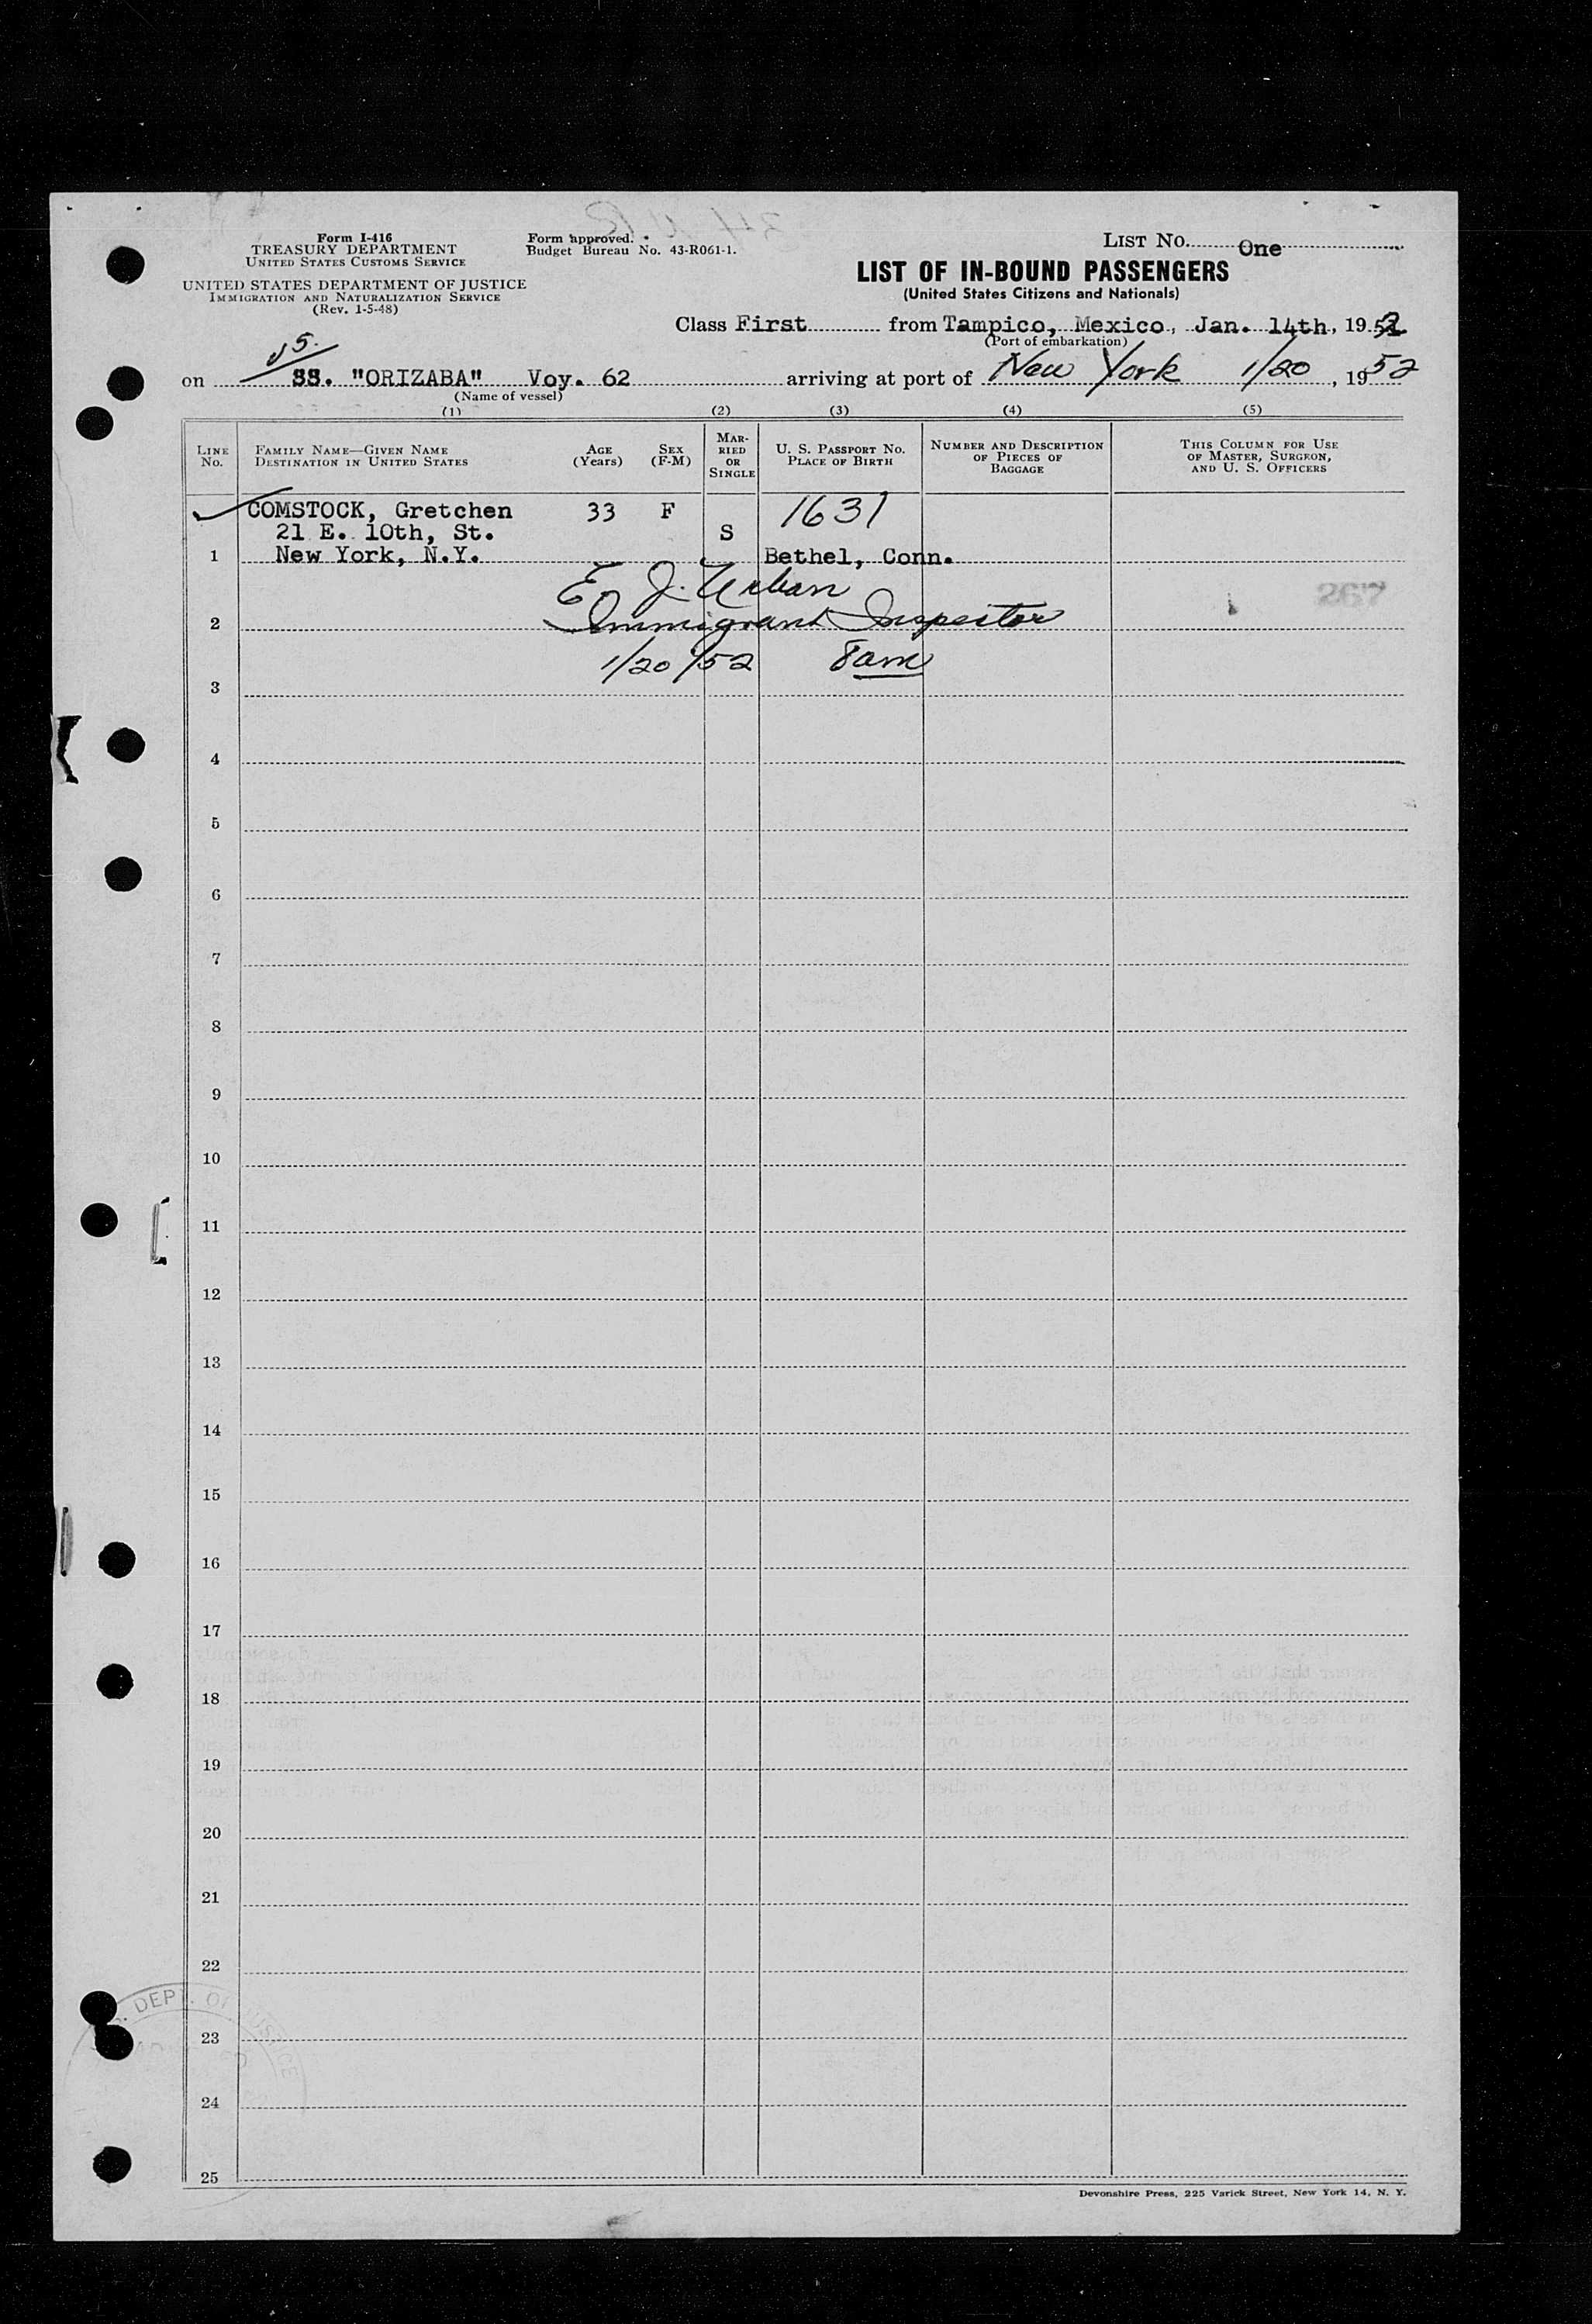 Form I-416
TREASURY DEPARTMENT
UNITED STATES CUSTOMS SERVICE
UNITED STATES DEPARTMENT OF JUSTICE
IMMIGRATION AND NATURALIZATION SERVICE
(Rev. 1-5-48)
Form approved.
Budget Bureau No. 43-R061-1.
LIST No. One
LIST OF IN-BOUND PASSENGERS
(United States Citizens and Nationals)
Class First from Tampico, Mexico, Jan. 14th, 1952
(Port of embarkation)
on SS. "ORIZABA" Voy. 62 arriving at port of New York 1/20, 1952
(Name of vessel)
(1) (2) (3) (4) (5)
LINE No.
FAMILY NAME—GIVEN NAME
DESTINATION IN UNITED STATES
AGE
(Years)
SEX
(F-M)
MAR-
RIED
OR
SINGLE
U. S. PASSPORT No.
PLACE OF BIRTH
NUMBER AND DESCRIPTION
OF PIECES OF
BAGGAGE
THIS COLUMN FOR USE
OF MASTER, SURGEON,
AND U. S. OFFICERS
COMSTOCK, Gretchen 33 F 1631
21 E. 10th, St. S
1 New York, N.Y. Bethel, Conn.
E. J. Urban
267
2 Immigrant Inspector
1/20/52 8am
3
4
5
6
7
8
9
10
11
12
13
14
15
16
17
18
19
20
21
22
23
24
25
DEPT. OF JUSTICE
Devonshire Press, 225 Varick Street, New York 14, N. Y.